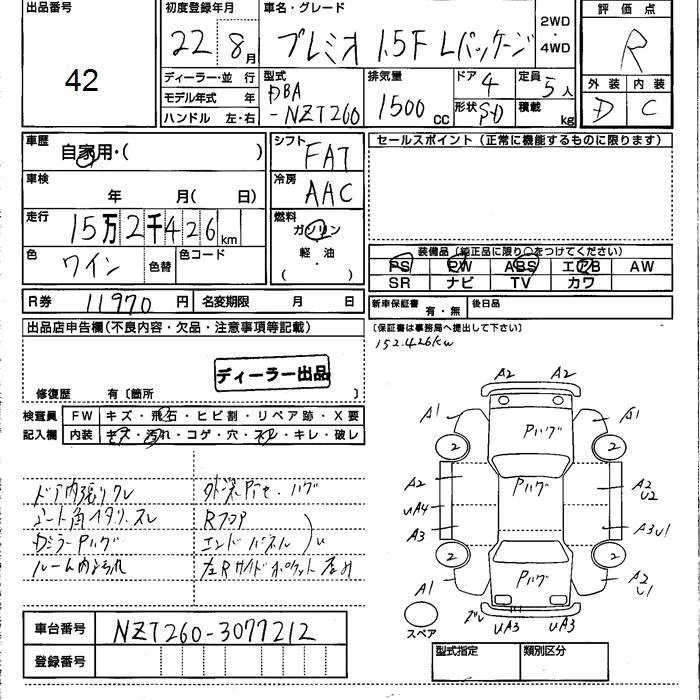 出品番号
42
初度登録年月
22 8月
車名・グレード
プレミオ 1.5F Lパッケージ
2WD
・
4WD
評価点
R
外装 内装
D C
ディーラー・並行
モデル年式 年
ハンドル 左・右
型式
DBA
-NZT260
排気量
1500 CC
ドア 4
形状 SD
定員 5人
積載 kg
車歴
自家用・( )
シフト
FAT
車検
年 月( 日)
冷房
AAC
走行
15万2千426km
燃料
ガソリン
軽・油
( ・ )
色
ワイン
色替
色コード
R券 11970円
名変期限 月 日
セールスポイント (正常に機能するものに限ります)
装備品 (純正品に限り○をつけてください)
PS PW ABS エアB AW
SR ナビ TV カワ
新車保証書 有・無
後日品
(保証書は事務局へ提出して下さい)
152.426km
出品店申告欄(不良内容・欠品・注意事項等記載)
ディーラー出品
修復歴 有〔箇所 〕
検査員
記入欄
FW キズ・飛石・ヒビ割・リペア跡・X要
内装 キズ・汚れ・コゲ・穴・スレ・キレ・破レ
ドア内張りクレ
シート角 スレ
ルーム内汚れ
Rフロア
エンドパネル
A2 A2
A1 A1
Pハゲ
2 2
A2 Pハゲ A2
U2
uA4
A3 A3U1
2 2
Pハゲ
A1 A2
U1
スペア
uA3 uA3
車台番号 NZT260-3077212
登録番号
型式指定 類別区分